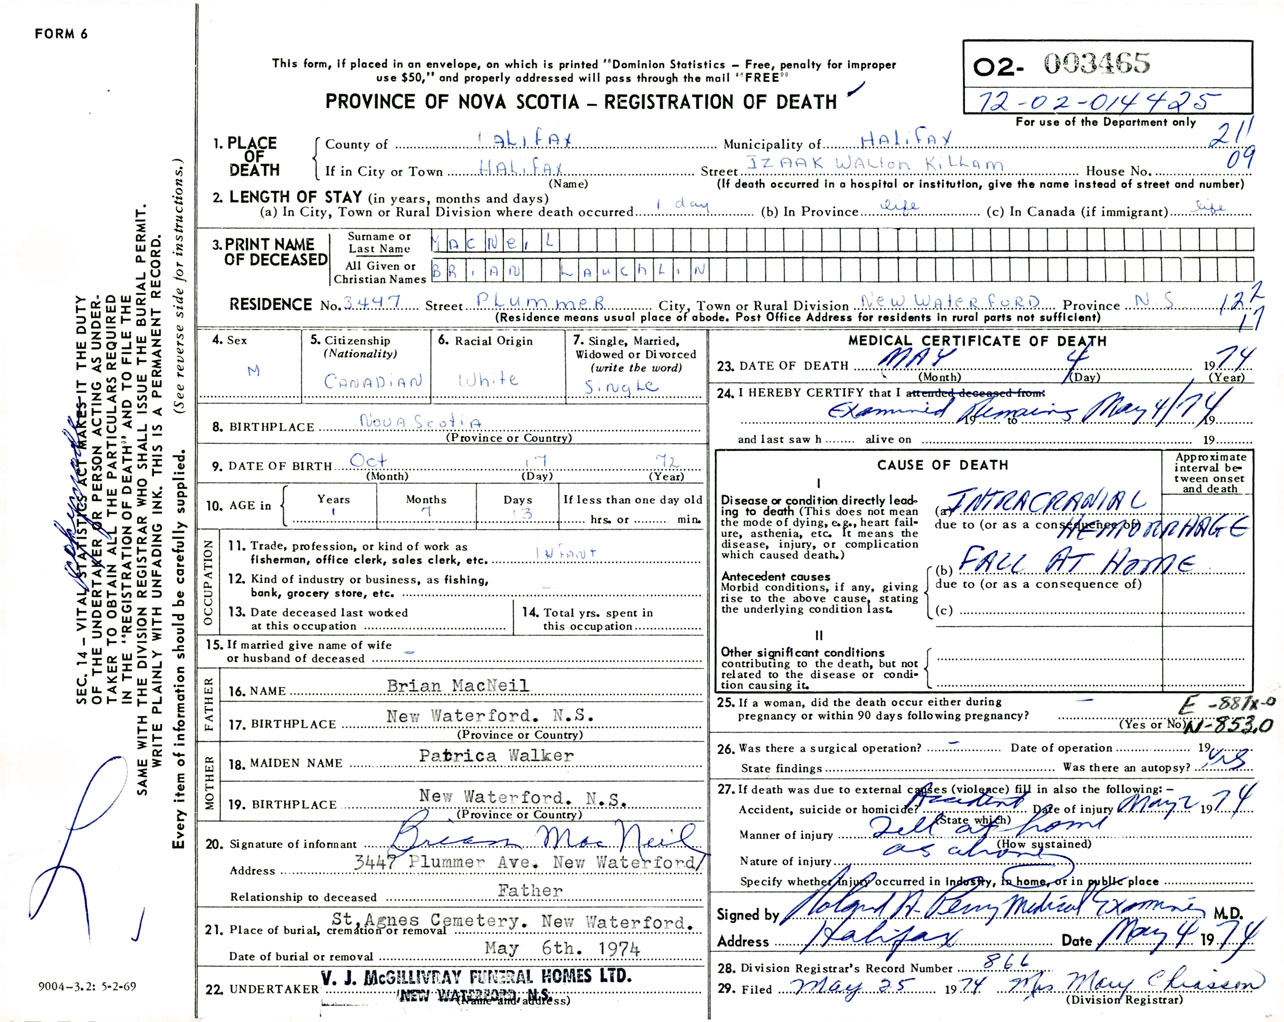 FORM 6
This form, if placed in an envelope, on which is printed "Dominion Statistics – Free, penalty for improper
use $50," and properly addressed will pass through the mail "FREE"
O2- 003465
72-02-014425
For use of the Department only
PROVINCE OF NOVA SCOTIA – REGISTRATION OF DEATH
1. PLACE OF DEATH
County of HALIFAX Municipality of HALIFAX 21
If in City or Town HALIFAX Street IZAAK WALTON KILLAM House No. 09
(Name) (If death occurred in a hospital or institution, give the name instead of street and number)
2. LENGTH OF STAY (in years, months and days)
(a) In City, Town or Rural Division where death occurred 1 day (b) In Province life (c) In Canada (if immigrant) life
3. PRINT NAME OF DECEASED
Surname or Last Name MACNEIL
All Given or Christian Names BRIAN LAUCHLIN
RESIDENCE No. 3447 Street PLUMMER City, Town or Rural Division NEW WATERFORD Province N S 122
(Residence means usual place of abode. Post Office Address for residents in rural parts not sufficient) 17
4. Sex
M
5. Citizenship
(Nationality)
CANADIAN
6. Racial Origin
White
7. Single, Married,
Widowed or Divorced
(write the word)
Single
8. BIRTHPLACE NOVA SCOTIA
(Province or Country)
9. DATE OF BIRTH Oct 17 72
(Month) (Day) (Year)
10. AGE in
Years Months Days If less than one day old
1 7 13 hrs. or min.
OCCUPATION
11. Trade, profession, or kind of work as
fisherman, office clerk, sales clerk, etc. INFANT
12. Kind of industry or business, as fishing,
bank, grocery store, etc.
13. Date deceased last worked
at this occupation
14. Total yrs. spent in
this occupation
15. If married give name of wife
or husband of deceased –
FATHER
16. NAME Brian MacNeil
17. BIRTHPLACE New Waterford. N.S.
(Province or Country)
MOTHER
18. MAIDEN NAME Patrica Walker
19. BIRTHPLACE New Waterford. N.S.
(Province or Country)
20. Signature of informant Brian MacNeil
Address 3447 Plummer Ave. New Waterford/
Relationship to deceased Father
21. Place of burial, cremation or removal St.Agnes Cemetery. New Waterford.
Date of burial or removal May 6th. 1974
22. UNDERTAKER V. J. McGILLIVRAY FUNERAL HOMES LTD.
NEW WATERFORD, N.S.
(Name and address)
MEDICAL CERTIFICATE OF DEATH
23. DATE OF DEATH MAY 4 1974
(Month) (Day) (Year)
24. I HEREBY CERTIFY that I attended deceased from:
Examined Remains May 4/74
19 to 19
and last saw h alive on 19
CAUSE OF DEATH
Approximate
interval be-
tween onset
and death
I
Disease or condition directly lead-
ing to death (This does not
mean the mode of dying, e.g., heart fail-
ure, asthenia, etc. It means the
disease, injury, or complication
which caused death.)
(a) INTRACRANIAL
due to (or as a consequence of)
HEMORRHAGE
Antecedent causes
Morbid conditions, if any, giving
rise to the above cause, stating
the underlying condition last.
(b) FALL AT HOME
due to (or as a consequence of)
(c)
II
Other significant conditions
contributing to the death, but not
related to the disease or condi-
tion causing it.
25. If a woman, did the death occur either during
pregnancy or within 90 days following pregnancy? –
(Yes or No)
N-853.0
26. Was there a surgical operation? – Date of operation 19
State findings Was there an autopsy? yes
27. If death was due to external causes (violence) fill in also the following: –
Accident, suicide or homicide? Accident Date of injury May 2 1974
(State which)
Manner of injury Fell at home
(How sustained)
Nature of injury as above
Specify whether injury occurred in industry, in home, or in public place
Signed by Roland A. Perry Medical Examiner M.D.
Address Halifax Date May 4 1974
28. Division Registrar's Record Number 866
29. Filed May 25 1974 Mrs Mary Chiasson
(Division Registrar)
SEC. 14 – VITAL STATISTICS ACT MAKES IT THE DUTY
OF THE UNDERTAKER OR PERSON ACTING AS UNDER-
TAKER TO OBTAIN ALL THE PARTICULARS REQUIRED
IN THE "REGISTRATION OF DEATH" AND TO FILE THE
SAME WITH THE DIVISION REGISTRAR WHO SHALL ISSUE THE BURIAL PERMIT.
WRITE PLAINLY WITH UNFADING INK. THIS IS A PERMANENT RECORD.
Every item of information should be carefully supplied. (See reverse side for instructions.)
9004-3.2: 5-2-69